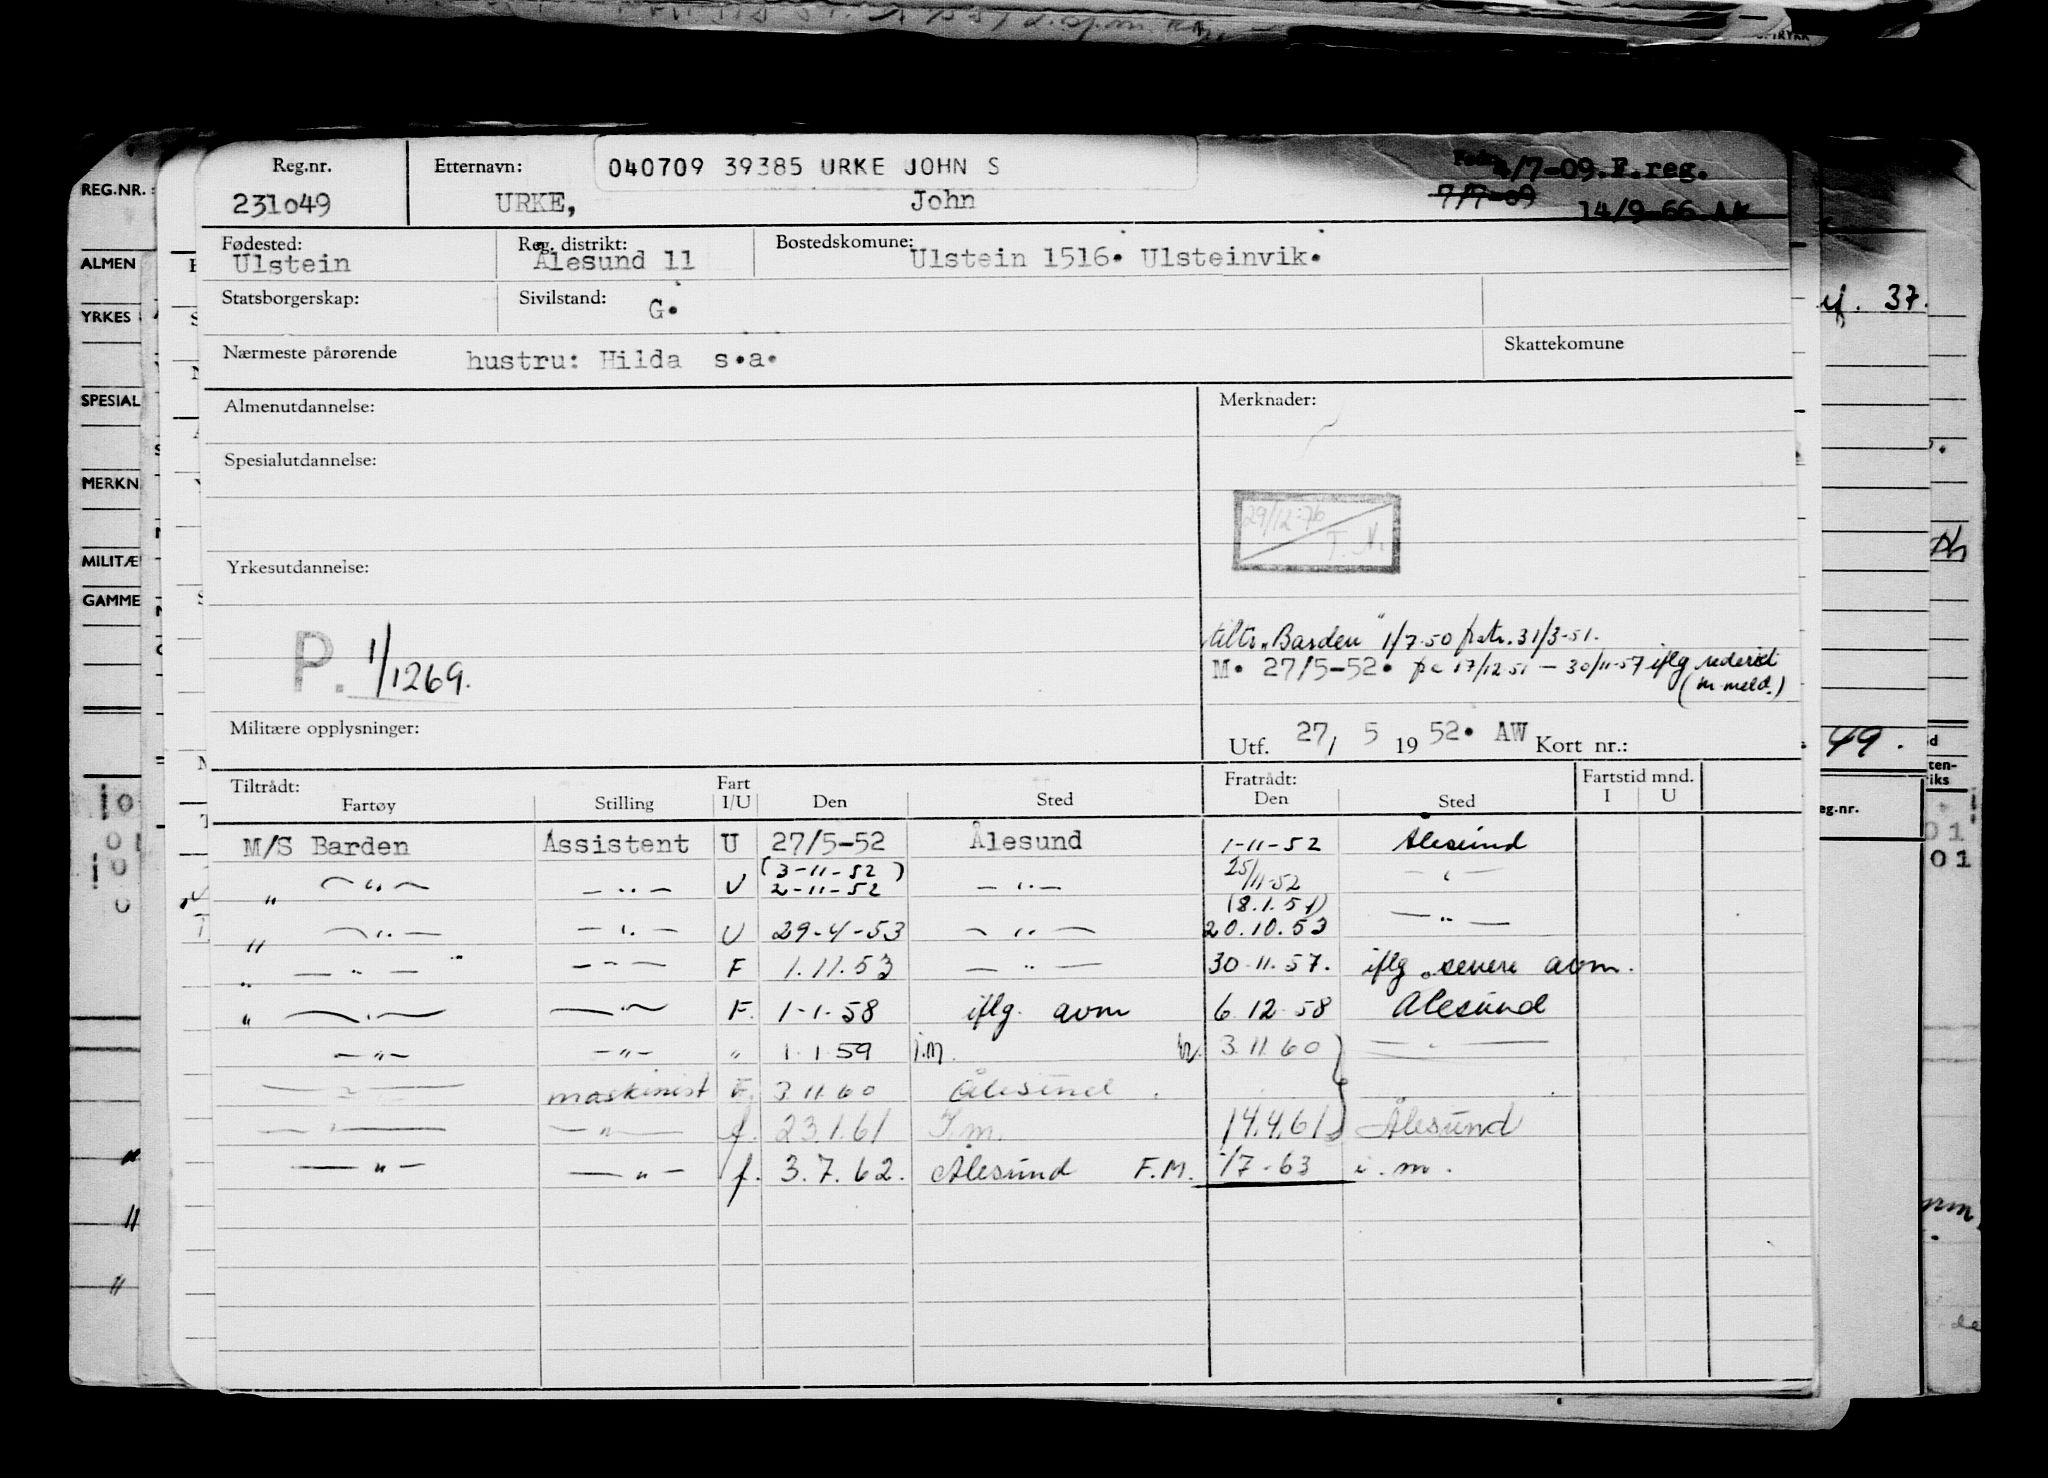 Reg.nr. Etternavn: 040709 39385 URKE JOHN S 4/7-09.F.reg.
231049 URKE, John 7/7-09 14/9-66 AK
Fødested: Reg. distrikt: Bostedskomune:
Ulstein Ålesund 11 Ulstein 1516. Ulsteinvik.
Statsborgerskap: Sivilstand: G.
Nærmeste pårørende hustru: Hilda s.a. Skattekomune
Almenutdannelse: Merknader:
Spesialutdannelse:
29/12-76
T. N.
Yrkesutdannelse:
P. 1/1269.
tiltr. "Barden" 1/7-50 fratr. 31/3-51.
M. 27/5-52. 17/12 51 — 30/11-57 iflg rederiet
(m meld.)
Militære opplysninger: Utf. 27/ 5 19 52. AW Kort nr.:
Tiltrådt: Fart Fratrådt: Fartstid mnd.
Fartøy Stilling I/U Den Sted Den Sted I U
M/S Barden Assistent U 27/5-52 Ålesund 1-11-52 Ålesund
(3-11-52)
" — " — — " — U 2-11-52 — " — 25/11-52 — " —
(8.1.51)
" — " — — " — U 29-4-53 — " — 20.10.53 — " —
" — " — — " — F 1.11.53 — " — 30-11-57. iflg senere avm.
" — " — — " — F. 1-1-58 iflg. avm 6 12 58 Ålesund
— " — — " — " 1.1.59 i.m. 3.11.60 — " —
— " — maskinist F. 3 11 60 Ålesund
— " — — " — f. 23.1.61 I.m. 14.4.61 Ålesund
— " — — " — f. 3.7.62. Ålesund F.M. 1/7-63 i.m.
REG.NR.:
ALMEN
YRKES
SPESIAL
MERKN
MILITÆ
GAMME
37.
49.
eg.nr.